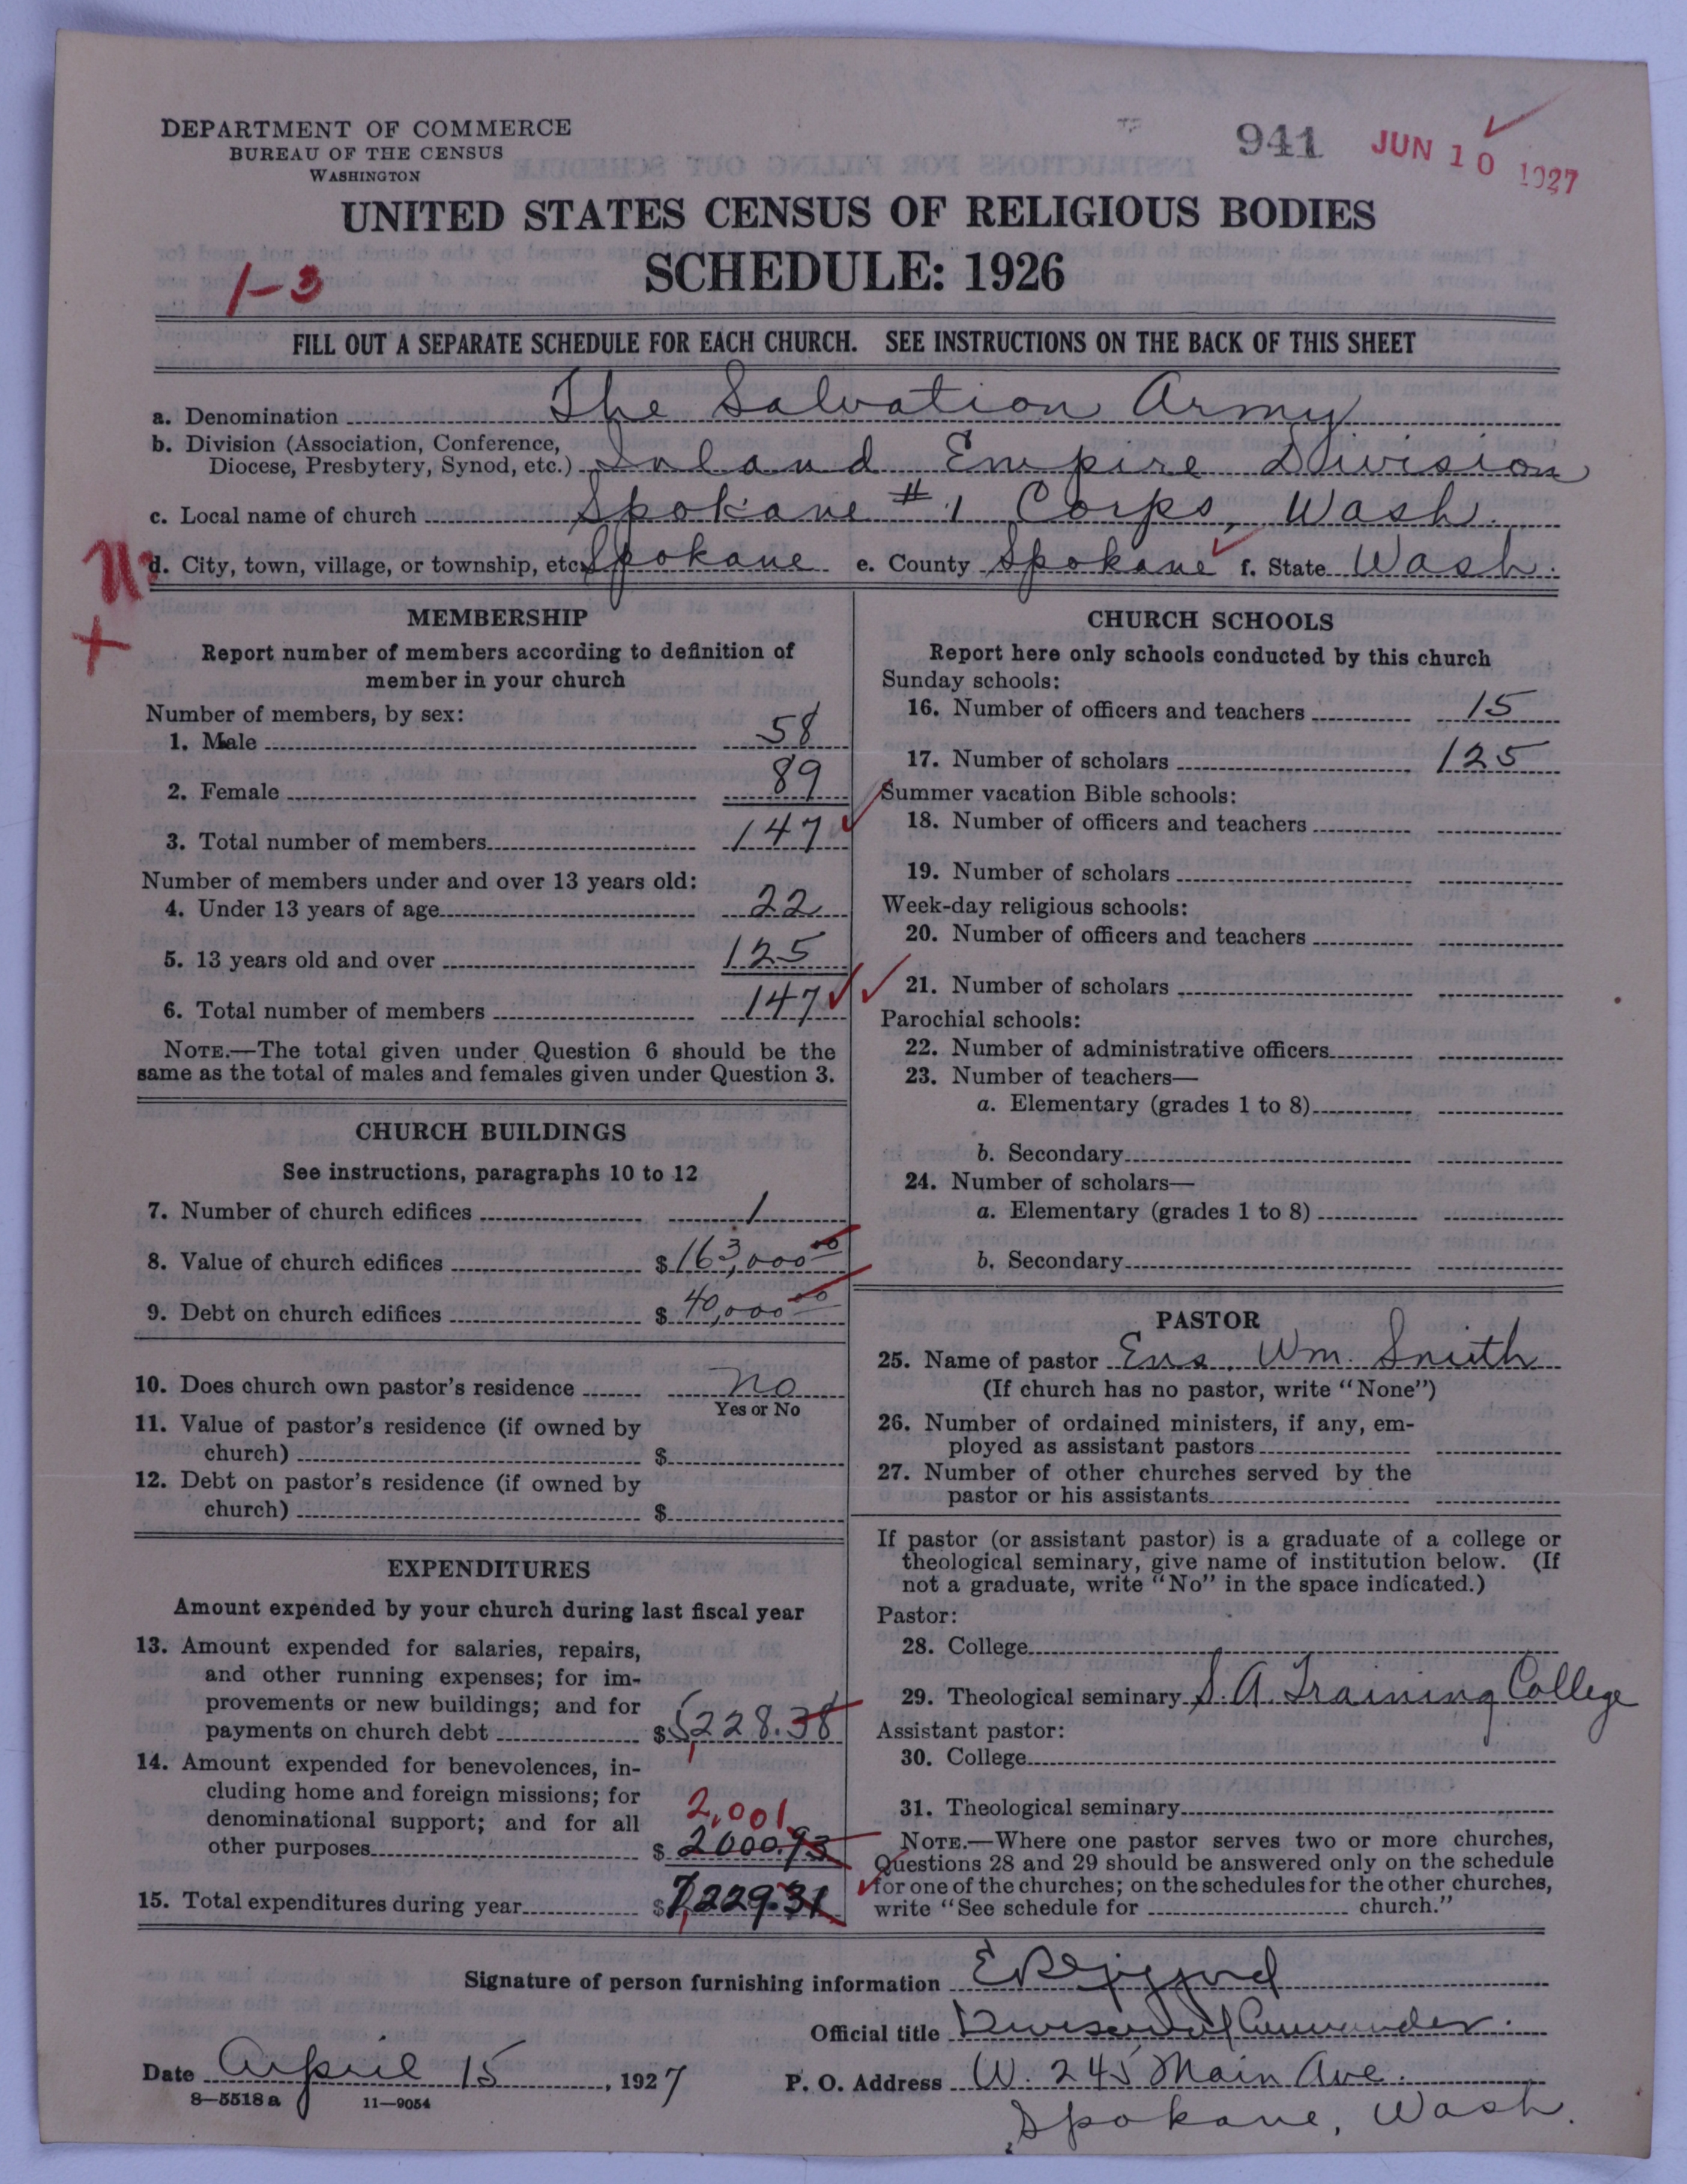 DEPARTMENT OF COMMERCE
BUREAU OF THE CENSUS
WASHINGTON
941 JUN 10 1927
UNITED STATES CENSUS OF RELIGIOUS BODIES
SCHEDULE: 1926
1-3
FILL OUT A SEPARATE SCHEDULE FOR EACH CHURCH. SEE INSTRUCTIONS ON THE BACK OF THIS SHEET
a. Denomination The Salvation Army
b. Division (Association, Conference,
Diocese, Presbytery, Synod, etc.) Inland Empire Division
c. Local name of church Spokane #1 Corps, Wash.
d. City, town, village, or township, etc. Spokane e. County Spokane f. State Wash.
MEMBERSHIP
Report number of members according to definition of
member in your church
Number of members, by sex:
1. Male 58
2. Female 89
3. Total number of members 147
Number of members under and over 13 years old:
4. Under 13 years of age 22
5. 13 years old and over 125
6. Total number of members 147
NOTE.—The total given under Question 6 should be the
same as the total of males and females given under Question 3.
CHURCH BUILDINGS
See instructions, paragraphs 10 to 12
7. Number of church edifices 1
8. Value of church edifices $163,000.00
9. Debt on church edifices $40,000.00
10. Does church own pastor's residence no
Yes or No
11. Value of pastor's residence (if owned by
church) $
12. Debt on pastor's residence (if owned by
church) $
EXPENDITURES
Amount expended by your church during last fiscal year
13. Amount expended for salaries, repairs,
and other running expenses; for im-
provements or new buildings; and for
payments on church debt $5228.38
14. Amount expended for benevolences, in-
cluding home and foreign missions; for
denominational support; and for all
2,001
other purposes $2000.93
15. Total expenditures during year $7,229.31
CHURCH SCHOOLS
Report here only schools conducted by this church
Sunday schools:
16. Number of officers and teachers 15
17. Number of scholars 125
Summer vacation Bible schools:
18. Number of officers and teachers
19. Number of scholars
Week-day religious schools:
20. Number of officers and teachers
21. Number of scholars
Parochial schools:
22. Number of administrative officers
23. Number of teachers—
a. Elementary (grades 1 to 8)
b. Secondary
24. Number of scholars—
a. Elementary (grades 1 to 8)
b. Secondary
PASTOR
25. Name of pastor Ens. Wm. Smith
(If church has no pastor, write "None")
26. Number of ordained ministers, if any, em-
ployed as assistant pastors
27. Number of other churches served by the
pastor or his assistants
If pastor (or assistant pastor) is a graduate of a college or
theological seminary, give name of institution below. (If
not a graduate, write "No" in the space indicated.)
Pastor:
28. College
29. Theological seminary S. A. Training College
Assistant pastor:
30. College
31. Theological seminary
NOTE.—Where one pastor serves two or more churches,
Questions 28 and 29 should be answered only on the schedule
for one of the churches; on the schedules for the other churches,
write "See schedule for church."
Signature of person furnishing information
Official title Divisional Commander.
Date April 15, 1927 P. O. Address W. 245 Main Ave.
Spokane, Wash.
8—5518a 11—9054